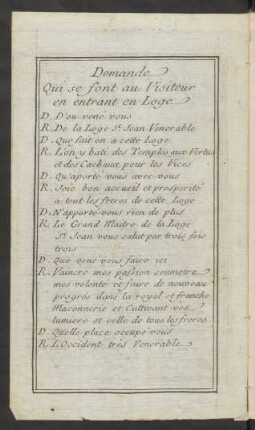 Demande
Qui se font au Visiteur
en entrant en Loge
D. D'ou venè vous
R. De la Loge St. Jean Venerable
D. Que fait on a cette Loge
R. L'on y bati des Temples aux Vertus
et des Cachaux pour les Vices
D. Qu'aporté vous avec vous
R. Joie bon accueil et prosperité
a tout les freres de cette Loge
D. N'apporté vous rien de plus
R. Le Grand Maitre de la Loge
St. Jean vous salut par trois fois
trois
D. Que venè vous faire ici
R. Vaincre mes passion soumetre
mes volonté et faire de nouveau
progrès dans la royal et franche
Maconnerie et Cultivant vos
lumiere et celle de tous les freres
D. Quelle place occupé vous
R. L'Occident très Venerable